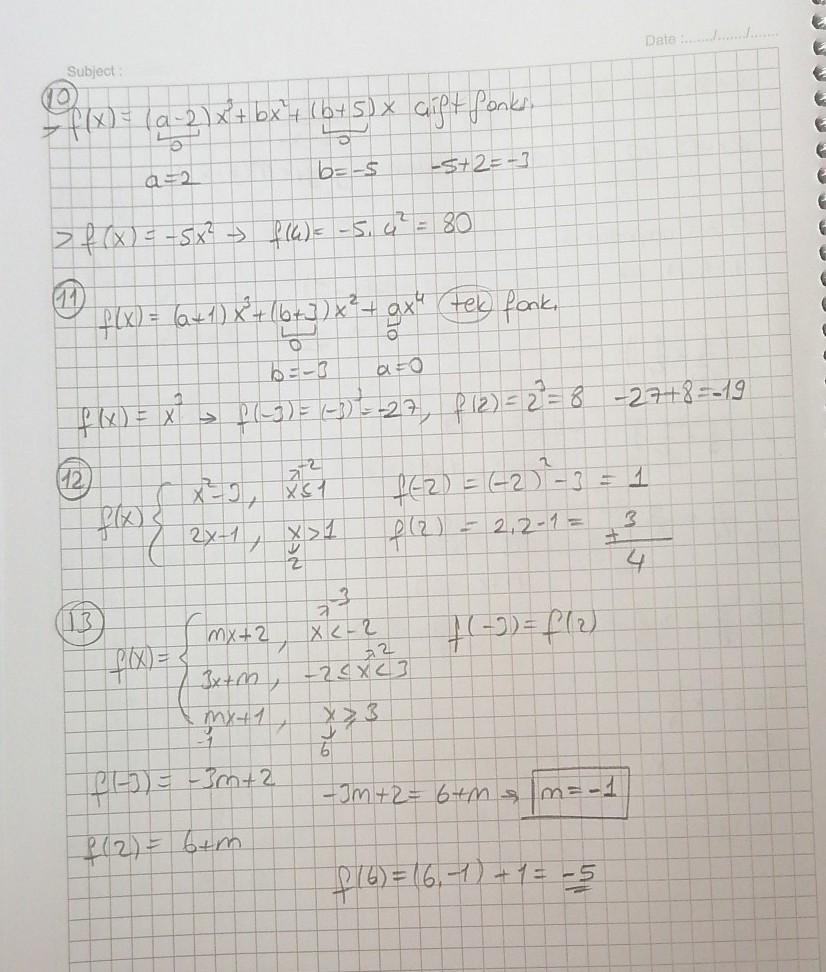 Date :......./......./.......
Subject :
10
> f(x) = (a-2)x³ + bx² + (b+5)x çift fonks.
0 0
a=2 b=-5 -5+2=-3
> f(x) = -5x² → f(4) = -5.4² = 80
11
f(x) = (a+1)x³ + (b+3)x² + ax⁴ tek fonk.
0 0
b=-3 a=0
f(x) = x³ → f(-3) = (-3)³ = -27, f(2) = 2³ = 8 -27+8=-19
12
-2
f(x) { x²-3, x≤1 f(-2) = (-2)²-3 = 1
2x-1, x>1 f(2) = 2.2-1 = 3
2 +
4
13
-3
f(x) = { mx+2, x<-2 f(-3) = f(2)
2
3x+m, -2≤x<3
mx+1, x≥3
-1 6
f(-3) = -3m+2 -3m+2 = 6+m → m=-1
f(2) = 6+m
f(6) = (6.-1)+1 = -5